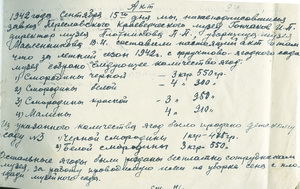 Акт
1942 года Сентября 15го дня мы, нижеподписавшиеся
завед. Переславского Краеведческого музея
директор музея Плотникова
составили настоящий акт о том
что за летний сезон 1942 г. с фруктово-ягодного сада
музея собрано следующее количество ягод:
1) Смородины черной - 3 кгр 550 гр.
2) Смородины белой - 4 "
3) Смородины красной - 3 " 350 "
4) Малины - 4 " 910 "
Из указанного количества ягод было продано детскому
саду №3 Черной смородины 1 кгр
Белой смородины 3 кгр 550
Остальные ягоды были розданы бесплатно сотрудникам
музея за работу по уборке сена с пло
щади музейного сада.